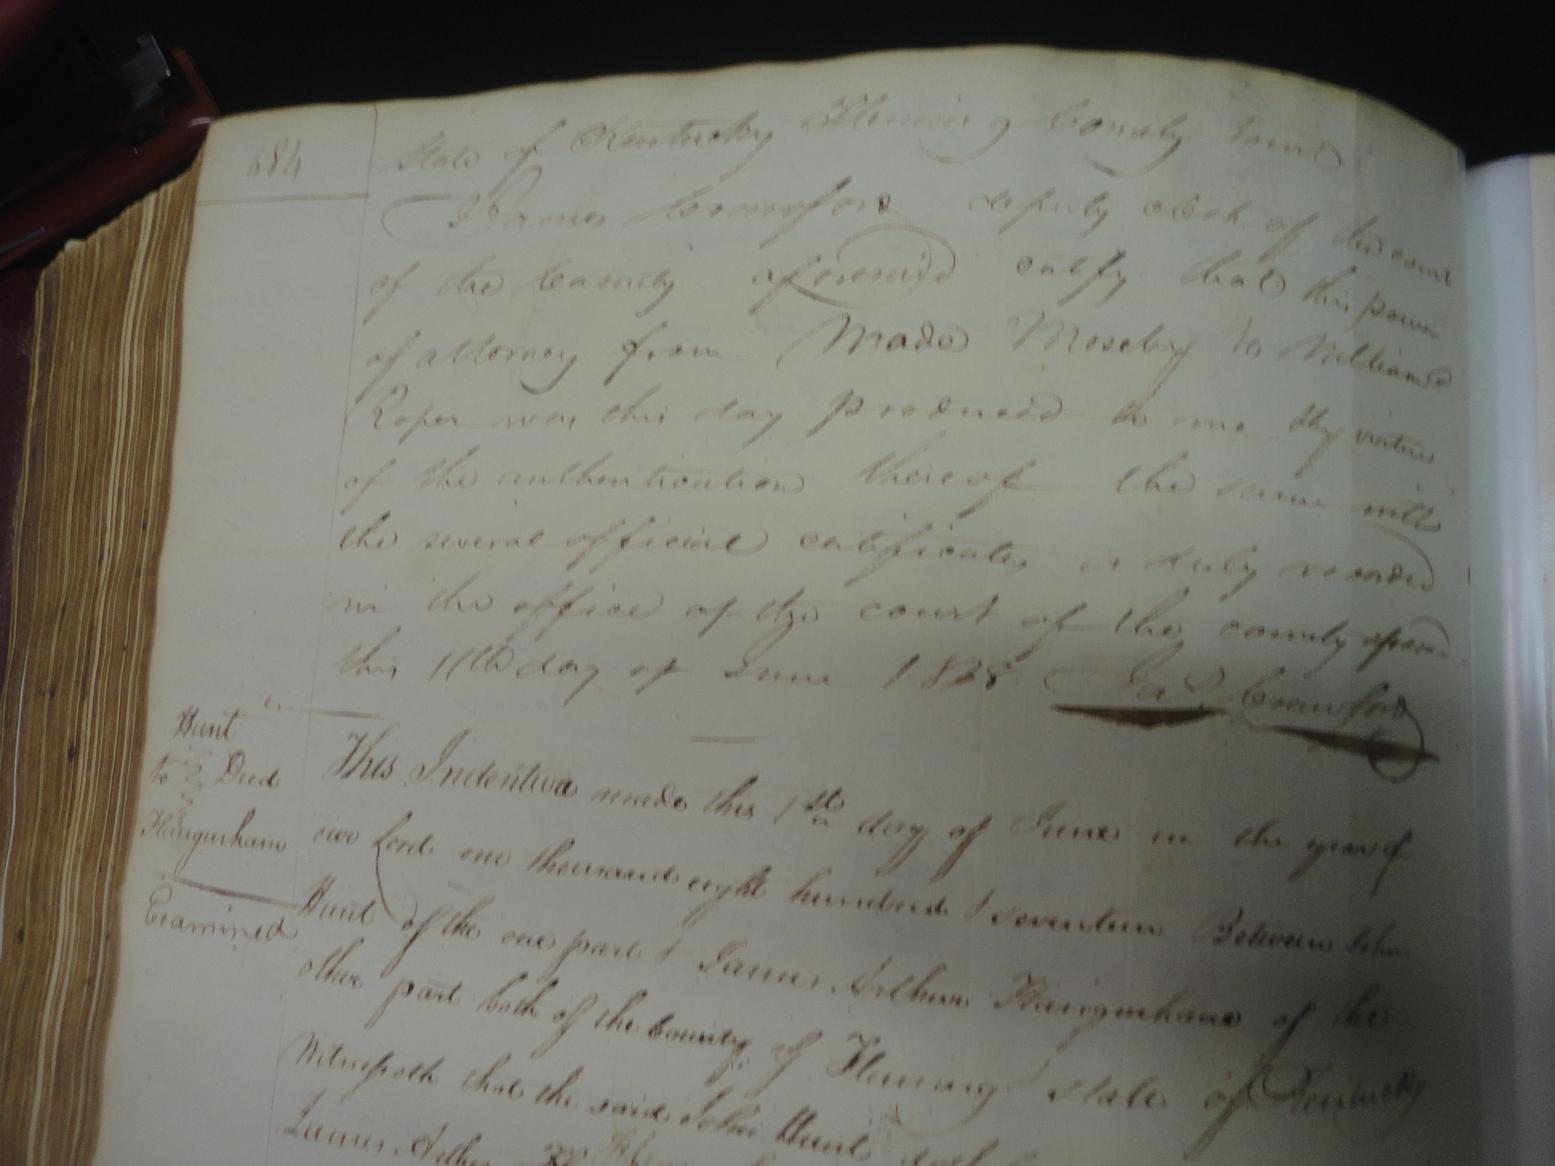 684
State of Kentucky Fleming County Court
I James Crawford deputy clerk of the court
of the County aforesaid certify that this power
of attorney from Wade Moseby to William
Roper was this day produced to me by virtue
of the authentication thereof the same with
the several official certificates is duly recorded
in the office of the court of the county aforesaid
this 11th day of June 1828 Jas Crawford
Hunt
to Deed
Farquharr
Examined
This Indenture made this 1st day of June in the year of
our Lord one thousand eight hundred & seventeen Between John
Hunt of the one part & James Arthur of the
other part both of the County of Fleming & state of Kentucky
Witnesseth that the said John Hunt
James Arthur